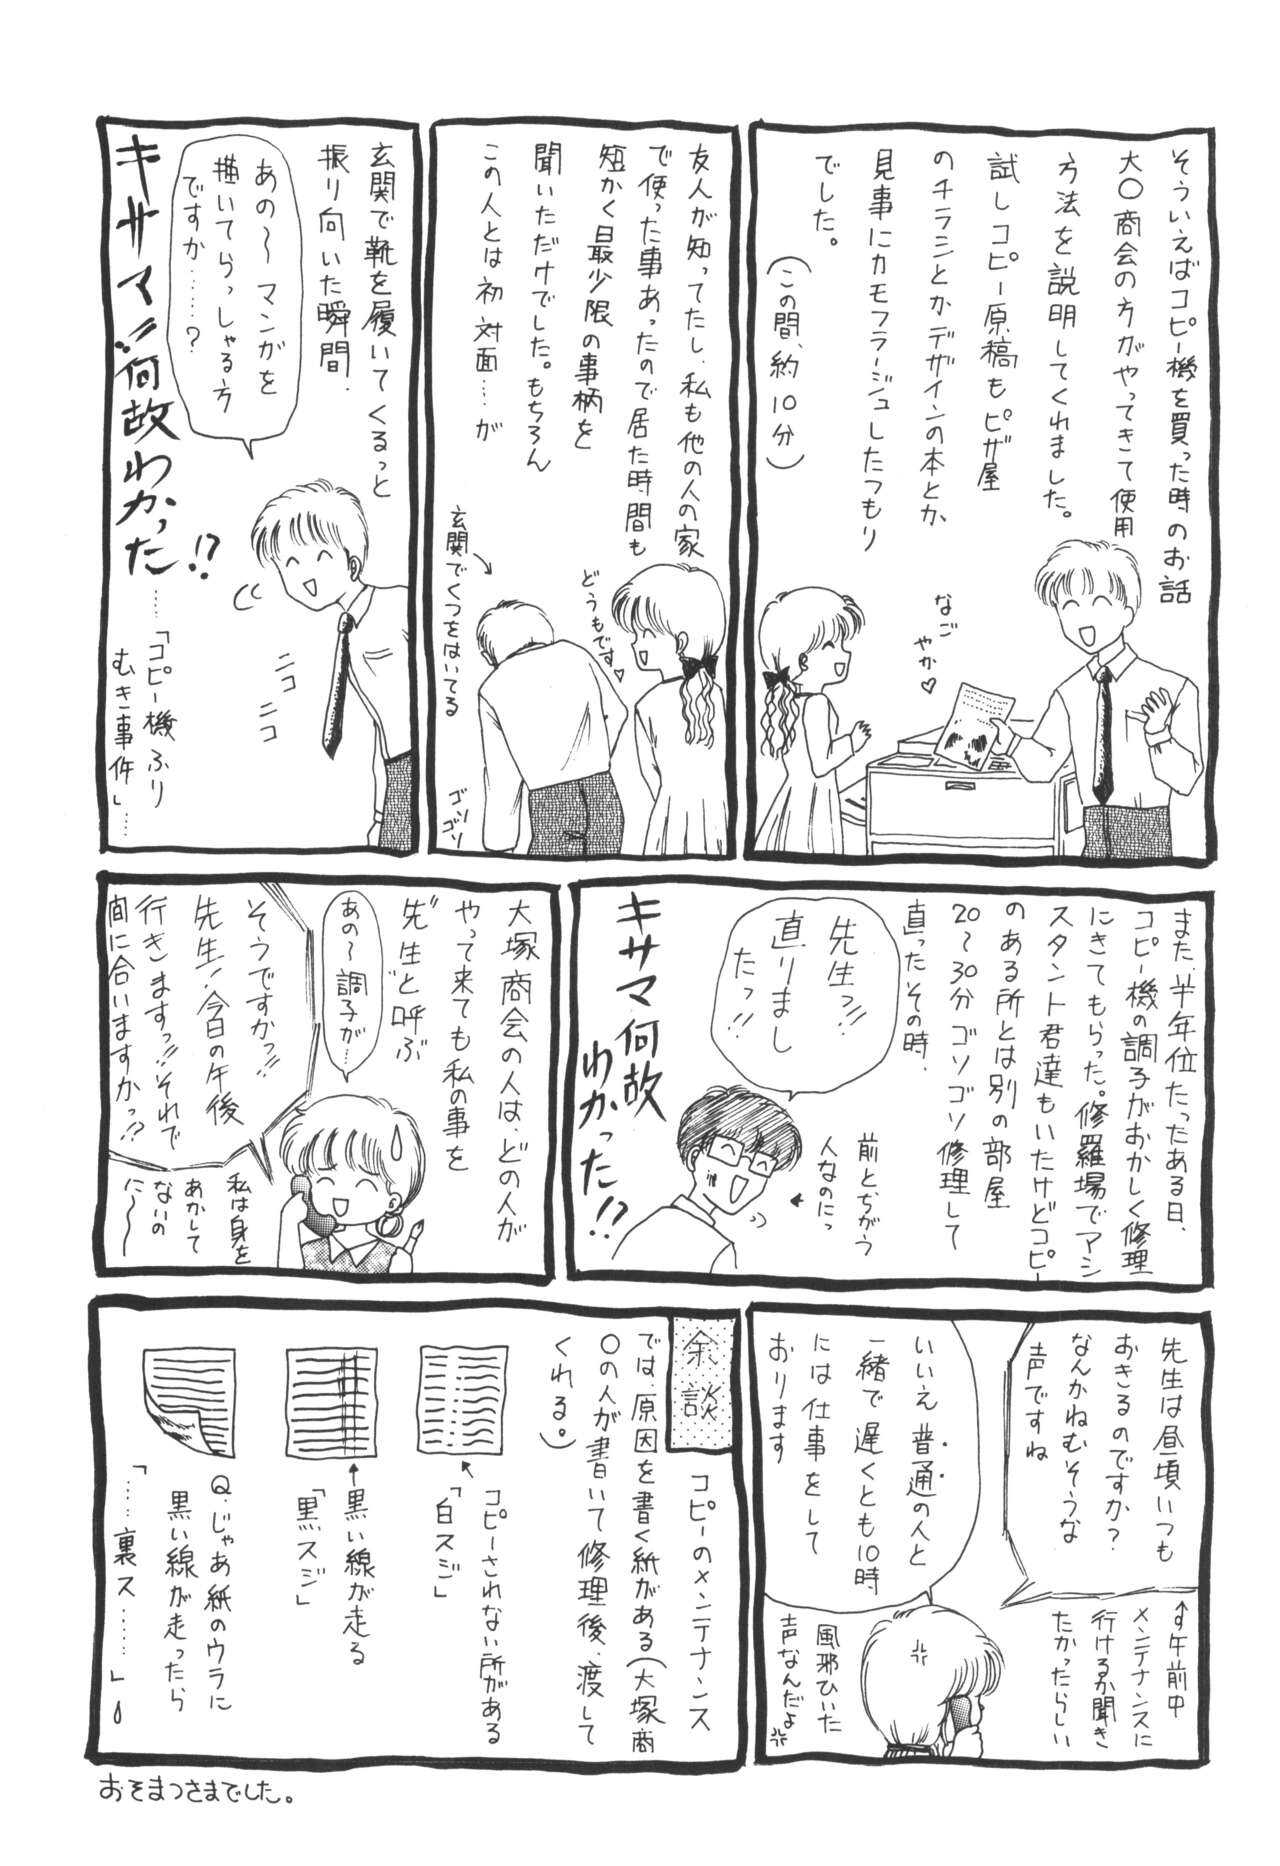 そういえばコピー機を買った時のお話
大〇商会の方がやってきて使用
方法を説明してくれました。
試しコピー原稿もピザ屋
のチラシとかデザインの本とか、
見事にカモフラージュしたつもり
でした。
(この間、約10分)
なご
やか♡
友人が知ってたし、私も他の人の家
で使った事あったので居た時間も
短かく最少限の事柄を
聞いただけでした。もちろん
この人とは初対面…が
どうもです♡
玄関でくつをはいてる
ゴソ
ゴソ
玄関で靴を履いてくるっと
振り向いた瞬間、
あの〜マンガを
描いてらっしゃる方
ですか……?
キサマ!!何故わかった!?
……「コピー機ふり
むき事件」……
ニコ
ニコ
また、半年位たったある日、
コピー機の調子がおかしく修理
にきてもらった。修羅場でアシ
スタント君達もいたけどコピー
のある所とは別の部屋
20〜30分ゴソゴソ修理して
直ったその時、
先生っ!!
直りまし
たっ!!
前とちがう
人なのにっ
キサマ何故
わかった!?
大塚商会の人は、どの人が
やって来ても私の事を
"先生"と呼ぶ
あの〜調子が…
そうですかっ!!
先生!今日の午後
行きますっ!!それで
間に合いますかっ!?
私は身を
あかして
ないの
に〜〜
先生は昼頃いつも
おきるのですか?
なんかねむそうな
声ですね
↑す午前中
メンテナンスに
行けるか聞き
たかったらしい
いいえ普通の人と
一緒で遅くとも10時
には仕事をして
おります
風邪ひいた
声なんだよ
余談
コピーのメンテナンス
では原因を書く紙がある(大塚商
〇の人が書いて修理後、渡して
くれる。)
コピーされない所がある
「白スジ」
黒い線が走る
「黒スジ」
Q.じゃあ紙のウラに
黒い線が走ったら
「……裏ス……」
おそまつさまでした。